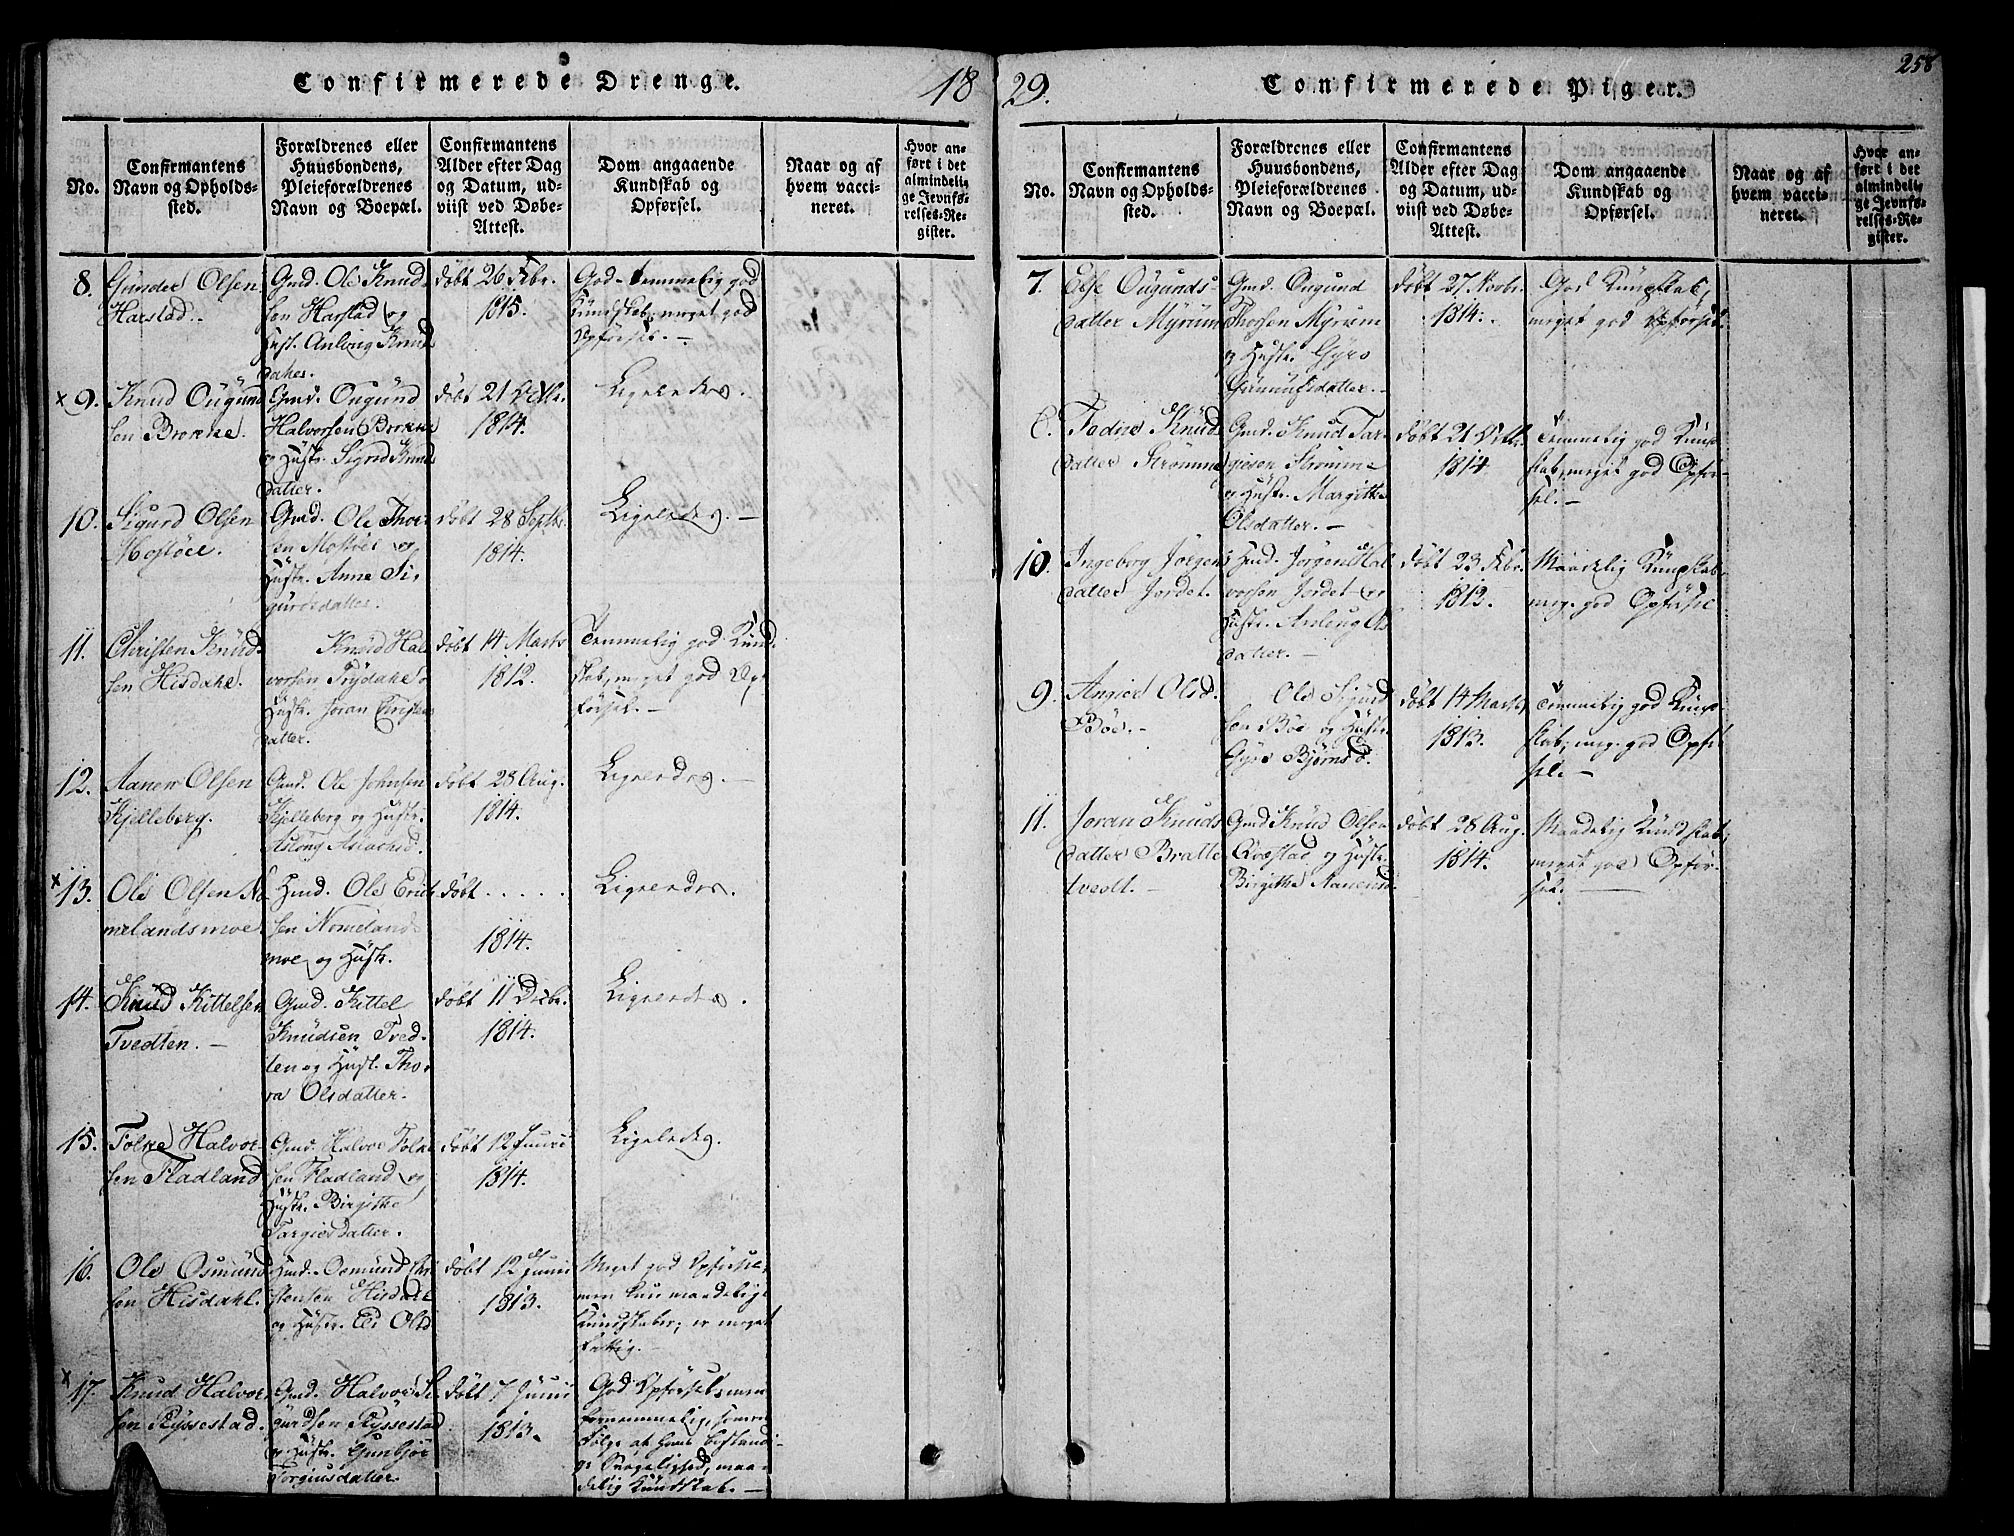 Confirmerede Drenge.
18
No.
Confirmantens
Navn og Opholds-
sted.
Forældrenes eller
Huusbondens,
Pleieforældrenes
Navn og Boepæl.
Confirmantens
Alder efter Dag
og Datum, ud-
viist ved Døbe-
Attest.
Dom angaaende
Kundskab og
Opførsel.
Naar og af
hvem vacci-
neret.
Hvor an-
ført i det
almindeli-
ge Jevnfø-
relses-Re-
gister.
8.
Gunder Olsen
Harstad.
Gmd. Ole Knud-
sen Harstad og
Hust. Anlong Knuds
datter.
døbt 26 Febr.
1815.
God temmelig god
Kundskab, meget god
Opførsel. —
x 9.
Knud Ougund
sen Brokke.
Gmd. Ougund
Halvorsen Brokke
og Hustr. Sigrid Knuds
datter.
døbt 21
1814.
Ligeledes.
10.
Sigurd Olsen
Mostöel.
Gmd. Ole Thor-
sen Mostöel og
Hustr. Anne Si-
gurdsdatter.
døbt 28 Septbr.
1814.
Ligeledes. —
11.
Christen Knud-
sen Hisdahl.
Knud Hal-
vorsen
Hustr. Joran Christens
datter.
døbt 14 Marts
1812.
Temmelig god Kund-
skab, meget god Op-
førsel. —
12.
Aanen Olsen
Kjelleberg.
Gmd. Ole Johnsen
Kjelleberg og Hustr.
Aslong Aslachsd.
døbt 28 Aug.
1814.
Ligeledes. —
x 13.
Ole Olsen No-
melandsmoe.
Hmd. Ole Erich-
sen Nomelands
moe og Hustr.
døbt . . . . .
1814.
Ligeledes.
14.
Knud Kittelsen
Tvedten. —
Gmd. Kittel
Knudsen Tved-
ten og Hust. Tho-
ra Olsdatter.
døbt 11 Decbr.
1814.
Ligeledes.
15.
Folke Halvor-
sen Fladland
Gmd. Halvor Folke
sen Fladland og
Hustr. Birgithe
Targiesdatter.
døbt 12 Junii
1814.
Ligeledes.
16.
Ole Osmund
sen Hisdahl.
Hmd. Osmund Chri
stensen Hisdahl
og Hustr. Olsd
døbt 12 Junii
1813.
Meget god Opførsel,
men kun maadelige
Kundskaber; er meget
fattig.
x 17.
Knud Halvor-
sen Ryssestad.
Gmd. Halvor Si-
gurdsen Ryssestad
og Hustr. Gunbjör
Torgiusdatter.
døbt 7 Junii
1813.
God Opførsel, men
formedelst
Følge af hans bestandi-
ge Svagelighed, maa-
delig Kundskab. —
29.
Confirmerede Piger.
258
No.
Confirmantens
Navn og Opholds-
sted.
Forældrenes eller
Huusbondens,
Pleieforældrenes
Navn og Boepæl.
Confirmantens
Alder efter Dag
og Datum, ud-
viist ved Døbe-
Attest.
Dom angaaende
Kundskab og
Opførsel.
Naar og af
hvem vacci-
neret.
Hvor an-
ført i det
almindeli-
ge Jevnfø-
relses-Re-
gister.
7.
Else Ougunds-
datter Myrum
Gmd. Ougund
Thorsen Myrum
og Hustr. Gyro
Gunnulfsdatter. —
døbt 27 Novbr.
1814.
God Kundskab,
meget god Opførsel.
Knuds
datter Strømme
Gmd. Knud Tar-
giesen Strømme
og Hustr. Margith
Olsdatter. —
døbt 21
1814
Temmelig god Kund-
skab, meget god Opfør-
sel. —
10.
Ingeborg Jörgens
datter Jordet.
Hmd. Jörgen Hal-
vorsen Jordet og
Hustr. Anlaug Ols
datter. —
døbt 23 Febr.
1812.
Maadelig Kundskab
meg. god Opførsel
9.
Angier Olsd.
Böe. —
Ole Sigurd
sen Böe og Hustr.
Gyro Bjørnsd.
døbt 14 Marts,
1813.
Temmelig god Kund-
skab, meg. god Opfør
sel. —
11.
Joran Knuds
datter Bratte
tvedt. —
Gmd Knud Olsen
Qvæstad og Hustr.
Birgithe Aanensd.
døbt 28 Aug.
1814.
Maadelig Kundskab,
meget god Opfør-
sel. —